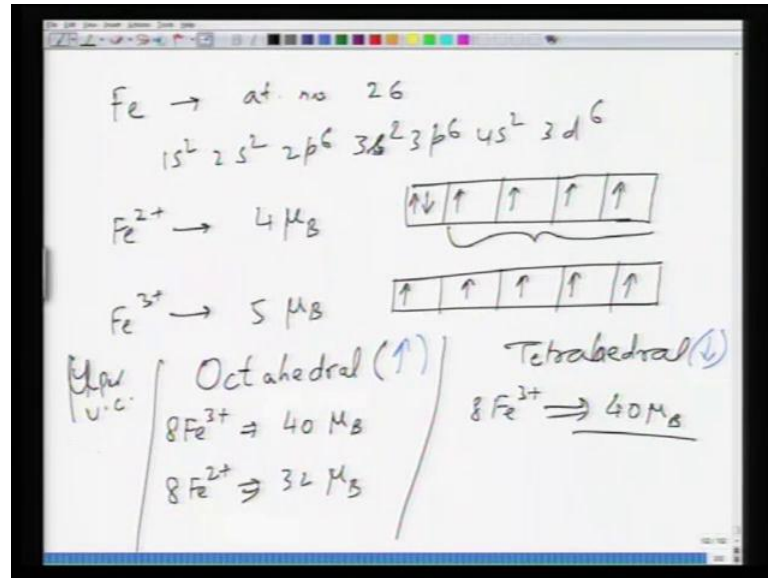 Fe → at. no 26
1s² 2s² 2p⁶ 3s² 3p⁶ 4s² 3d⁶
Fe²⁺ → 4 μB
↑↓ ↑ ↑ ↑ ↑
Fe³⁺ → 5 μB
↑ ↑ ↑ ↑ ↑
per
u.c.
Octahedral (↑)
8Fe³⁺ ⇒ 40 μB
8Fe²⁺ ⇒ 32 μB
Tetrahedral (↓)
8Fe³⁺ ⇒ 40 μB